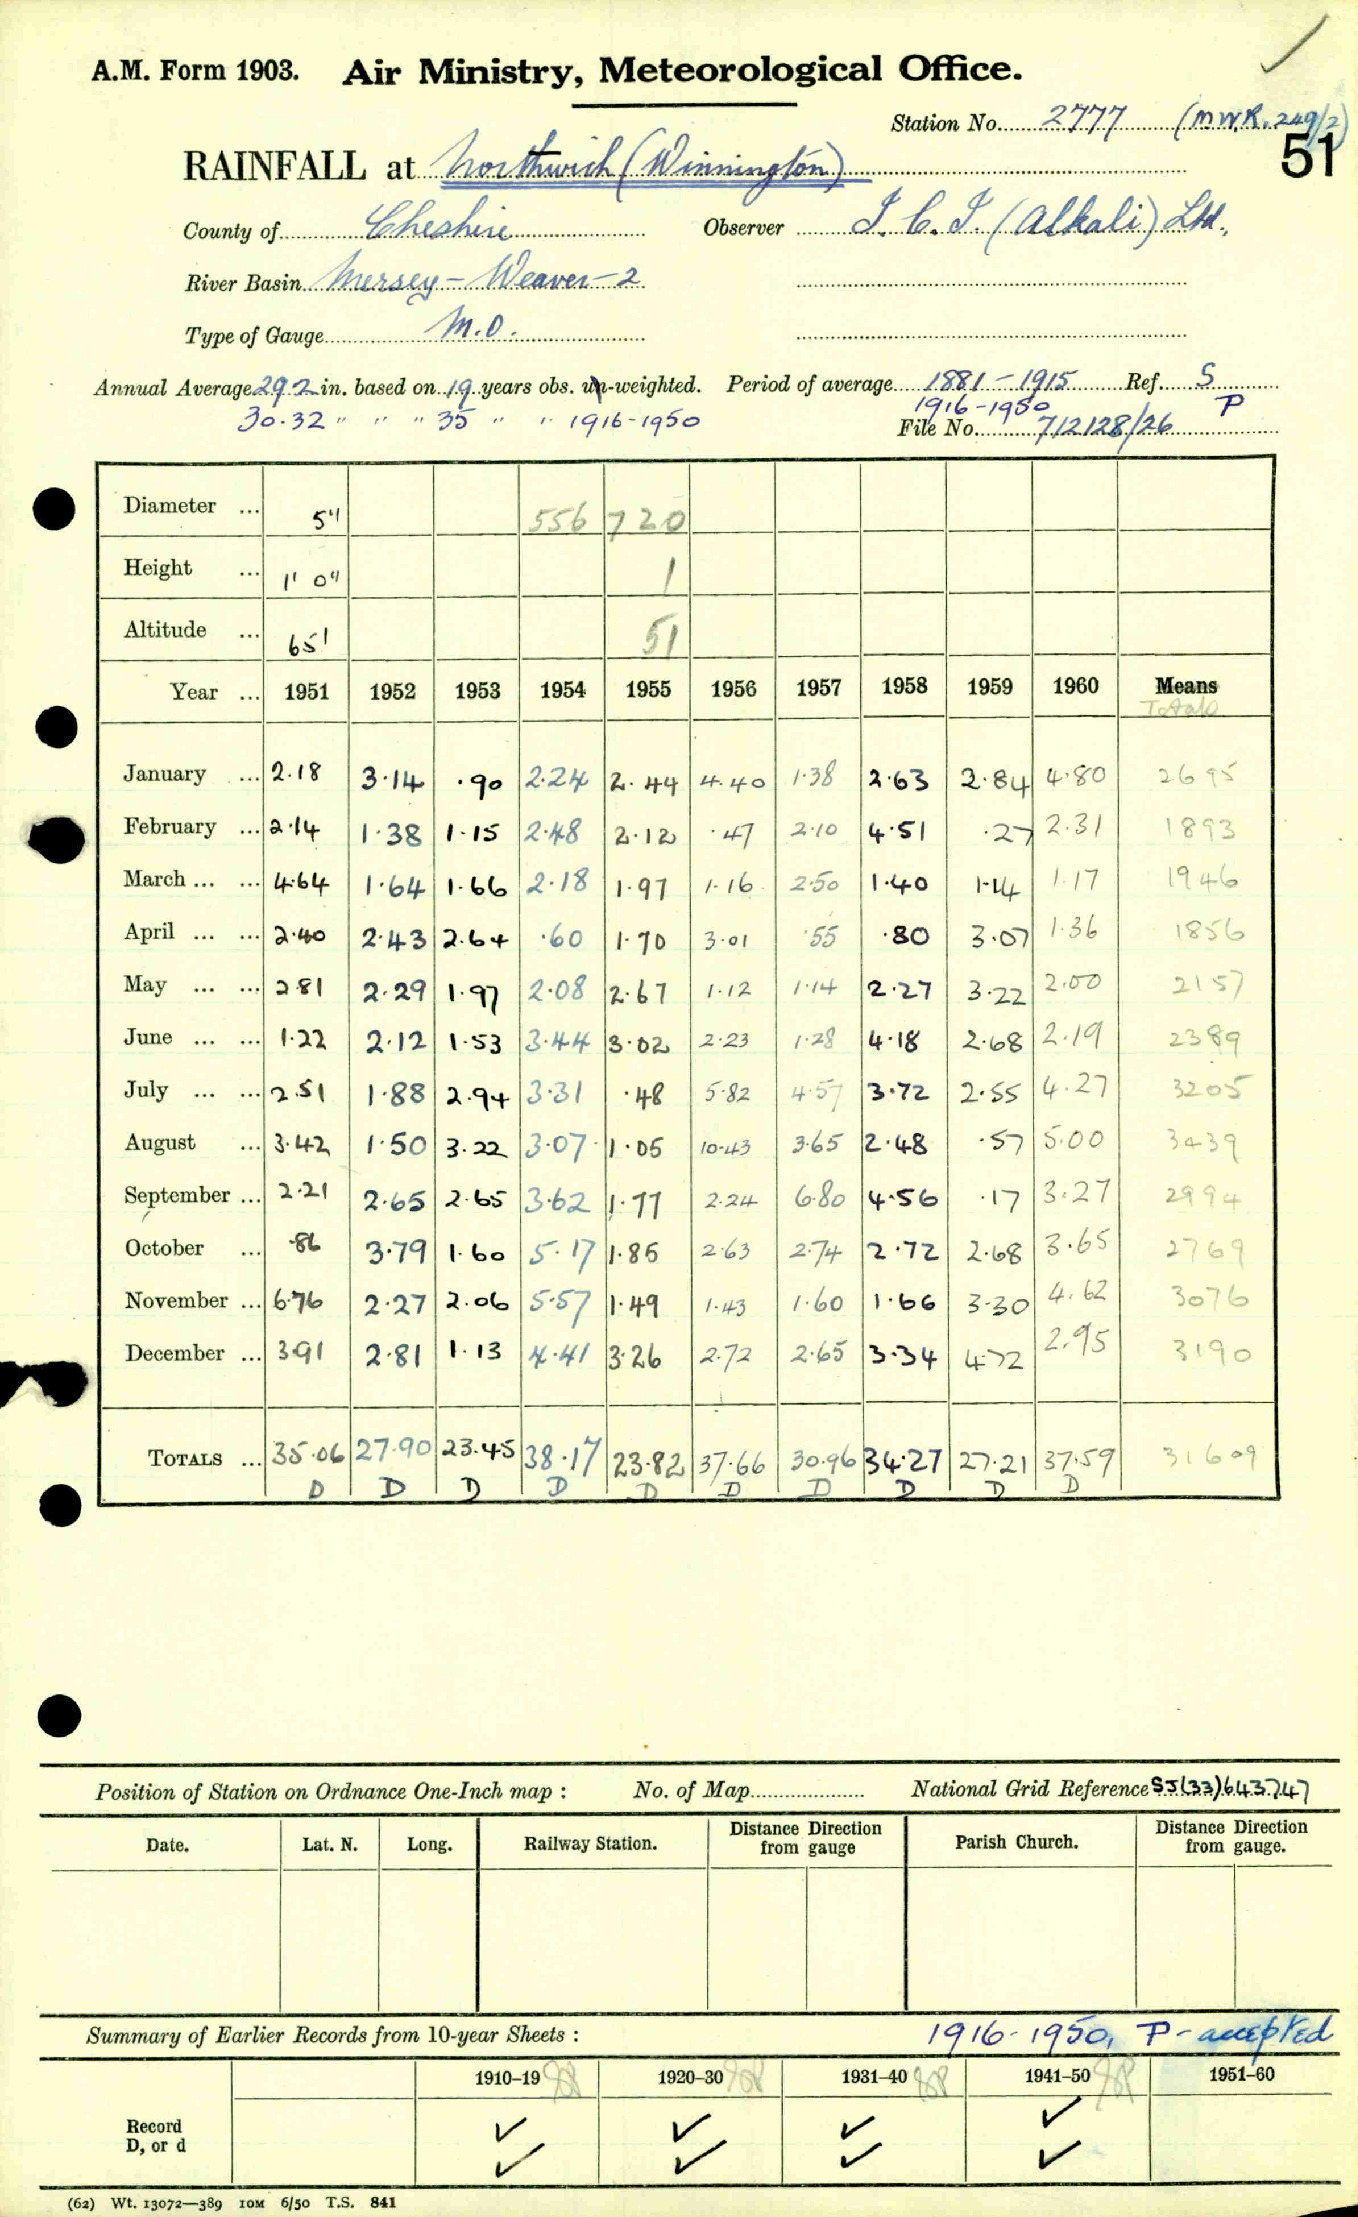 A.M. Form 1903. Air Ministry, Meteorological Office.
Station No. 2777 (M.W.R. 249/2)
51
RAINFALL at Northwich (Winnington)
County of Cheshire Observer I.C.I. (Alkali) Ltd.,
River Basin Mersey - Weaver - 2
Type of Gauge M.O.
Annual Average 29.2 in. based on 19 years obs. un-weighted. Period of average 1881-1915 Ref. S
30.32 " " " 35 " " " 1916-1950 1916-1950 P
File No. 712128/26
Diameter ... 5" 556 720
Height ... 1' 0" 1
Altitude ... 65' 51
Year ... 1951 1952 1953 1954 1955 1956 1957 1958 1959 1960 Means
Totals
January ... 2.18 3.14 .90 2.24 2.44 4.40 1.38 2.63 2.84 4.80 2695
February ... 2.14 1.38 1.15 2.48 2.12 .47 2.10 4.51 .27 2.31 1893
March ... ... 4.64 1.64 1.66 2.18 1.97 1.16 2.50 1.40 1.14 1.17 1946
April ... ... 2.40 2.43 2.64 .60 1.70 3.01 .55 .80 3.07 1.36 1856
May ... ... 2.81 2.29 1.97 2.08 2.67 1.12 1.14 2.27 3.22 2.00 2157
June ... ... 1.22 2.12 1.53 3.44 3.02 2.23 1.28 4.18 2.68 2.19 2389
July ... ... 2.51 1.88 2.94 3.31 .48 5.82 4.57 3.72 2.55 4.27 3205
August ... 3.42 1.50 3.22 3.07 1.05 10.43 3.65 2.48 .57 5.00 3439
September ... 2.21 2.65 2.65 3.62 1.77 2.24 6.80 4.56 .17 3.27 2994
October ... .86 3.79 1.60 5.17 1.85 2.63 2.74 2.72 2.68 3.65 2769
November ... 6.76 2.27 2.06 5.57 1.49 1.43 1.60 1.66 3.30 4.62 3076
December ... 3.91 2.81 1.13 4.41 3.26 2.72 2.65 3.34 4.72 2.95 3190
TOTALS ... 35.06 27.90 23.45 38.17 23.82 37.66 30.96 34.27 27.21 37.59 31609
D D D D D D D D D D
Position of Station on Ordnance One-Inch map : No. of Map National Grid Reference SJ(33)643747
Date. Lat. N. Long. Railway Station. Distance Direction from gauge Parish Church. Distance Direction from gauge.
Summary of Earlier Records from 10-year Sheets : 1916-1950, P - accepted
1910-19 1920-30 1931-40 1941-50 1951-60
Record ✓ ✓ ✓ ✓
D, or d ✓ ✓ ✓ ✓
(62) Wt. 13072—389 10M 6/50 T.S. 841